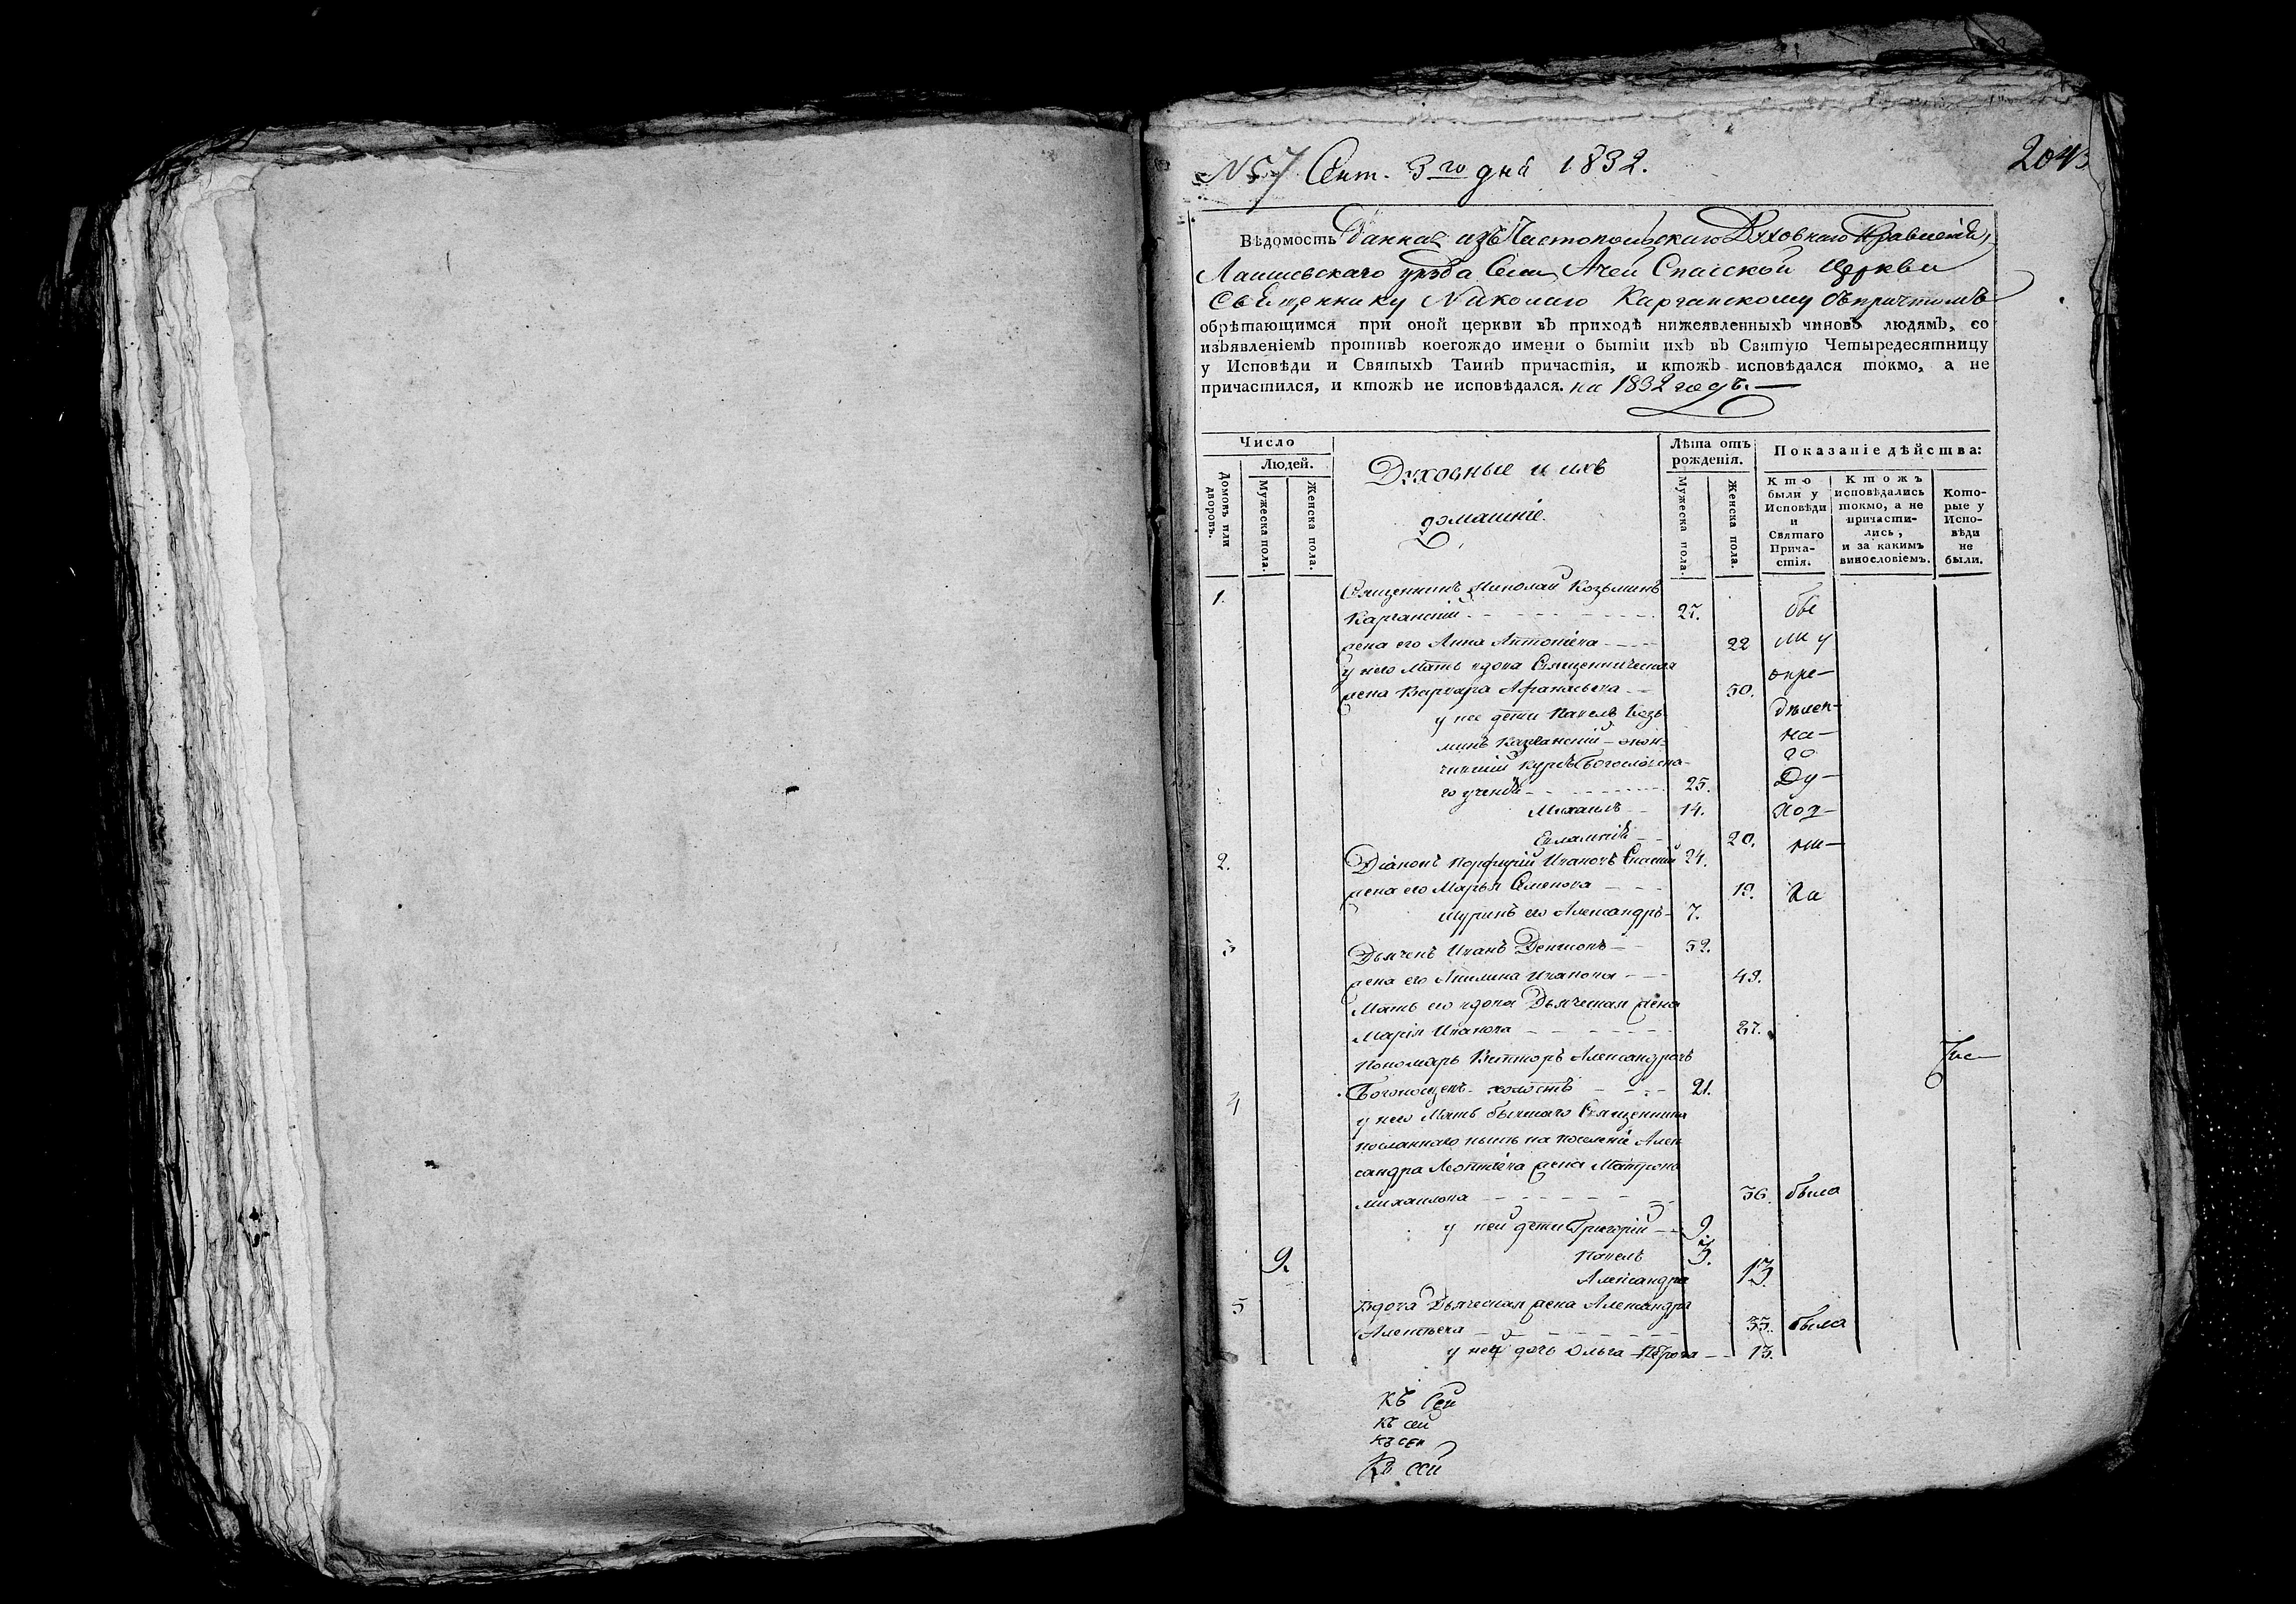 № 57 Сент. 3го дня 1832.
204
Вѣдомость данная изъ Чистопольскаго Духовнаго Правленія,
Лаишевскаго уѣзда Села Ачей Спасской Церкви
Священнику Николаю Карганскому съ причтомъ
обрѣтающимся при оной церкви въ приходѣ нижеявленныхъ чиновъ людямъ, со
изъявленіемъ противъ коегождо имени о бытіи ихъ въ Святую Четыредесятницу
у Исповѣди и Святыхъ Таинъ причастія, и ктожъ исповѣдался токмо, а не
причастился, и ктожъ не исповѣдался. на 1832 годъ.
Число
Людей.
Домовъ или дворовъ.
Мужеска пола.
Женска пола.
Духовные и ихъ
домашніе.
Лѣта отъ
рожденія.
Мужеска пола.
Женска пола.
Показаніе дѣйства:
Кто
были у
Исповѣди
и
Святаго
Прича-
стія.
Ктожъ
исповѣдались
токмо, а не
причасти-
лись,
и за какимъ
винословіемъ.
Кото-
рые у
Испо-
вѣди
не
были.
1. Священникъ Николай Козьминъ
Карганскій 27. бы
жена его Анна Антоніева 22 ли у
у него мать вдова Священническая
жена Варвара Афанасьева 50. опре-
у нее дети Павелъ Козь дѣлен-
минъ Карганскій - окон- на-
чившій курсъ Богословска- го
го ученія 25. Ду-
Михаилъ 14. хов-
20. ни-
2. Діаконъ Порфирій Ивановъ Спаскій 24.
жена его Марья Семенова 19. ка
шуринъ его Александръ 7.
3 Дьячекъ Иванъ 52.
жена его Акилина Иванова 49.
Мать его вдова Дьяческая жена
Марія Иванова
Пономарь Викторъ Александровъ
4 холостъ 21.
у него Мать бывшаго Священника
посланнаго на поселеніе Алек
сандра Леонтіева жена Матрона
Михаилова 36. была
у ней дети Григорій 9.
9. Павелъ 3.
Александра 13
5 Вдова Дьяческая жена Александра
Алексѣева 35. была
у ней дочь Ольга Петрова 13.
Къ Сей
Къ сей
Къ сей
Къ сей